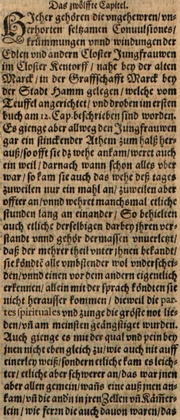 Das zwölffte Capitel.
Hieher gehören die ungehewren/ un-
erhörten seltzamen Convulsiones/
krümmungen vnnd windungen der
Edlen vnd andern Closter Jungfrauwen
im Closter Kentorff/ nahe bey der alten
Marck/ in der Graffschafft Marck bey
der Stadt Hamm gelegen/ welche vom
Teuffel angerichtet/ vnd droben im ersten
buch am 12. Cap. beschrieben sind worden.
Es gienge aber allweg den Jungfrauwen
gar ein stinckender Athem zum halß her-
auß/ so offt sie dz wehe ankam/ weret auch
ein weil/ darnach wann schon alles vber
war/ so kam sie auch das wehe deß tages
zuweilen nur ein mahl an/ zuweilen aber
offter an/ vnnd wehret manchsmal etliche
stunden lang an einander/ So behielten
auch etliche derselbigen darbey ihren ver-
standt vnnd gehör dermassen vnuerletzt/
daß der mehrer theil vnter jhnen bekandt/
sie köndte alle vmbsteher wol vnderschei-
den/ vnnd einen vor dem andern eigentlich
erkennen/ allein mit der sprach köndten sie
nicht herausser kommen/ dieweil die par-
tes spirituales vnd zunge die gröste not lie-
den/ vñ am meinsten geängstiget wurden.
Auch gienge es mit der qual vnd pein bey
jnen nicht eben gleich zu/ wie auch mit auff
einerley weiß/ sondern etliche kam es leich-
ter/ etliche aber schwerer an/ das war jnen
aber allen gemein/ wañs eine auß jnen an-
kam/ vñ die andn in jren Zellen vñ Kämer-
lein/ wie fern die auch dauon waren/ das